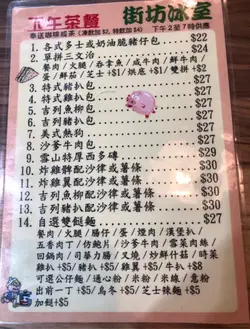 下午茶餐 街坊冰室
奉送咖啡或茶(凍飲加$2, 特飲加$4) 下午2至7時供應
1. 各式多士或奶油脆豬仔包 $22
2. 單拼三文治 $24
餐肉/火腿/吞拿魚/咸牛肉/鮮牛肉/
蛋/鮮茄/芝士+$1/烘底+$1/雙拼+$2
3. 吉列豬扒包 $27
4. 特式豬扒包 $27
5. 特式雞扒包 $27
6. 吉列魚柳包 $27
7. 美式熱狗 $27
8. 沙爹牛肉包 $27
9. 雪山特厚西多磚 $29
10. 炸雞髀配沙律或薯條 $29
11. 炸雞翼配沙律或薯條 $29
12. 吉列魚柳配沙律或薯條 $29
13. 吉列豬扒配沙律或薯條 $29
14. 自選雙餸麵 $29
餐肉/火腿/腸仔/蛋/煙肉/漢堡包/
五香肉丁/仿鮑片/沙爹牛肉/雪菜肉絲/
回鍋肉/司華力腸/叉燒/炒鮮什菇/時菜
雞扒+$5/豬扒+$5/雞翼+$5/牛扒+$8
可選公仔麵/通心粉/米粉/米線/意粉
出前一丁+$5/烏冬+$5/芝士辣麵+$5
加餸+$5